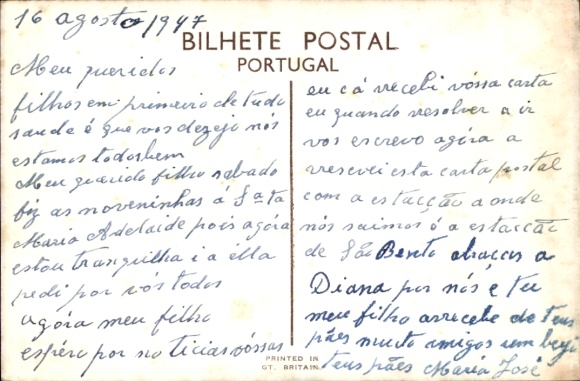 16 agosto 1947
BILHETE POSTAL
PORTUGAL
Meu queridos
filhos em primeiro de tudo
saude é que vos dezejo nós
estamos todos bem
Meu querido filho sabado
fiz as noveninhas á Sᵃⁿta
Maria Adelaide pois agóra
estou tranquilha i a élla
pedi por vós todos
agóra meu filho
espéro por no ticias vóssas
eu cá recebi vóssa carta
eu quando resolver a ir
vos escrevo agóra a
vrescvei esta carta postal
com a estacção a onde
nós saimos ó a estacção
de São Bento abracos a
Diana por nós e tu
meu filho arrecebe de teus
pães muito amigos um beijo
teus pães Maria José
PRINTED IN
GT. BRITAIN